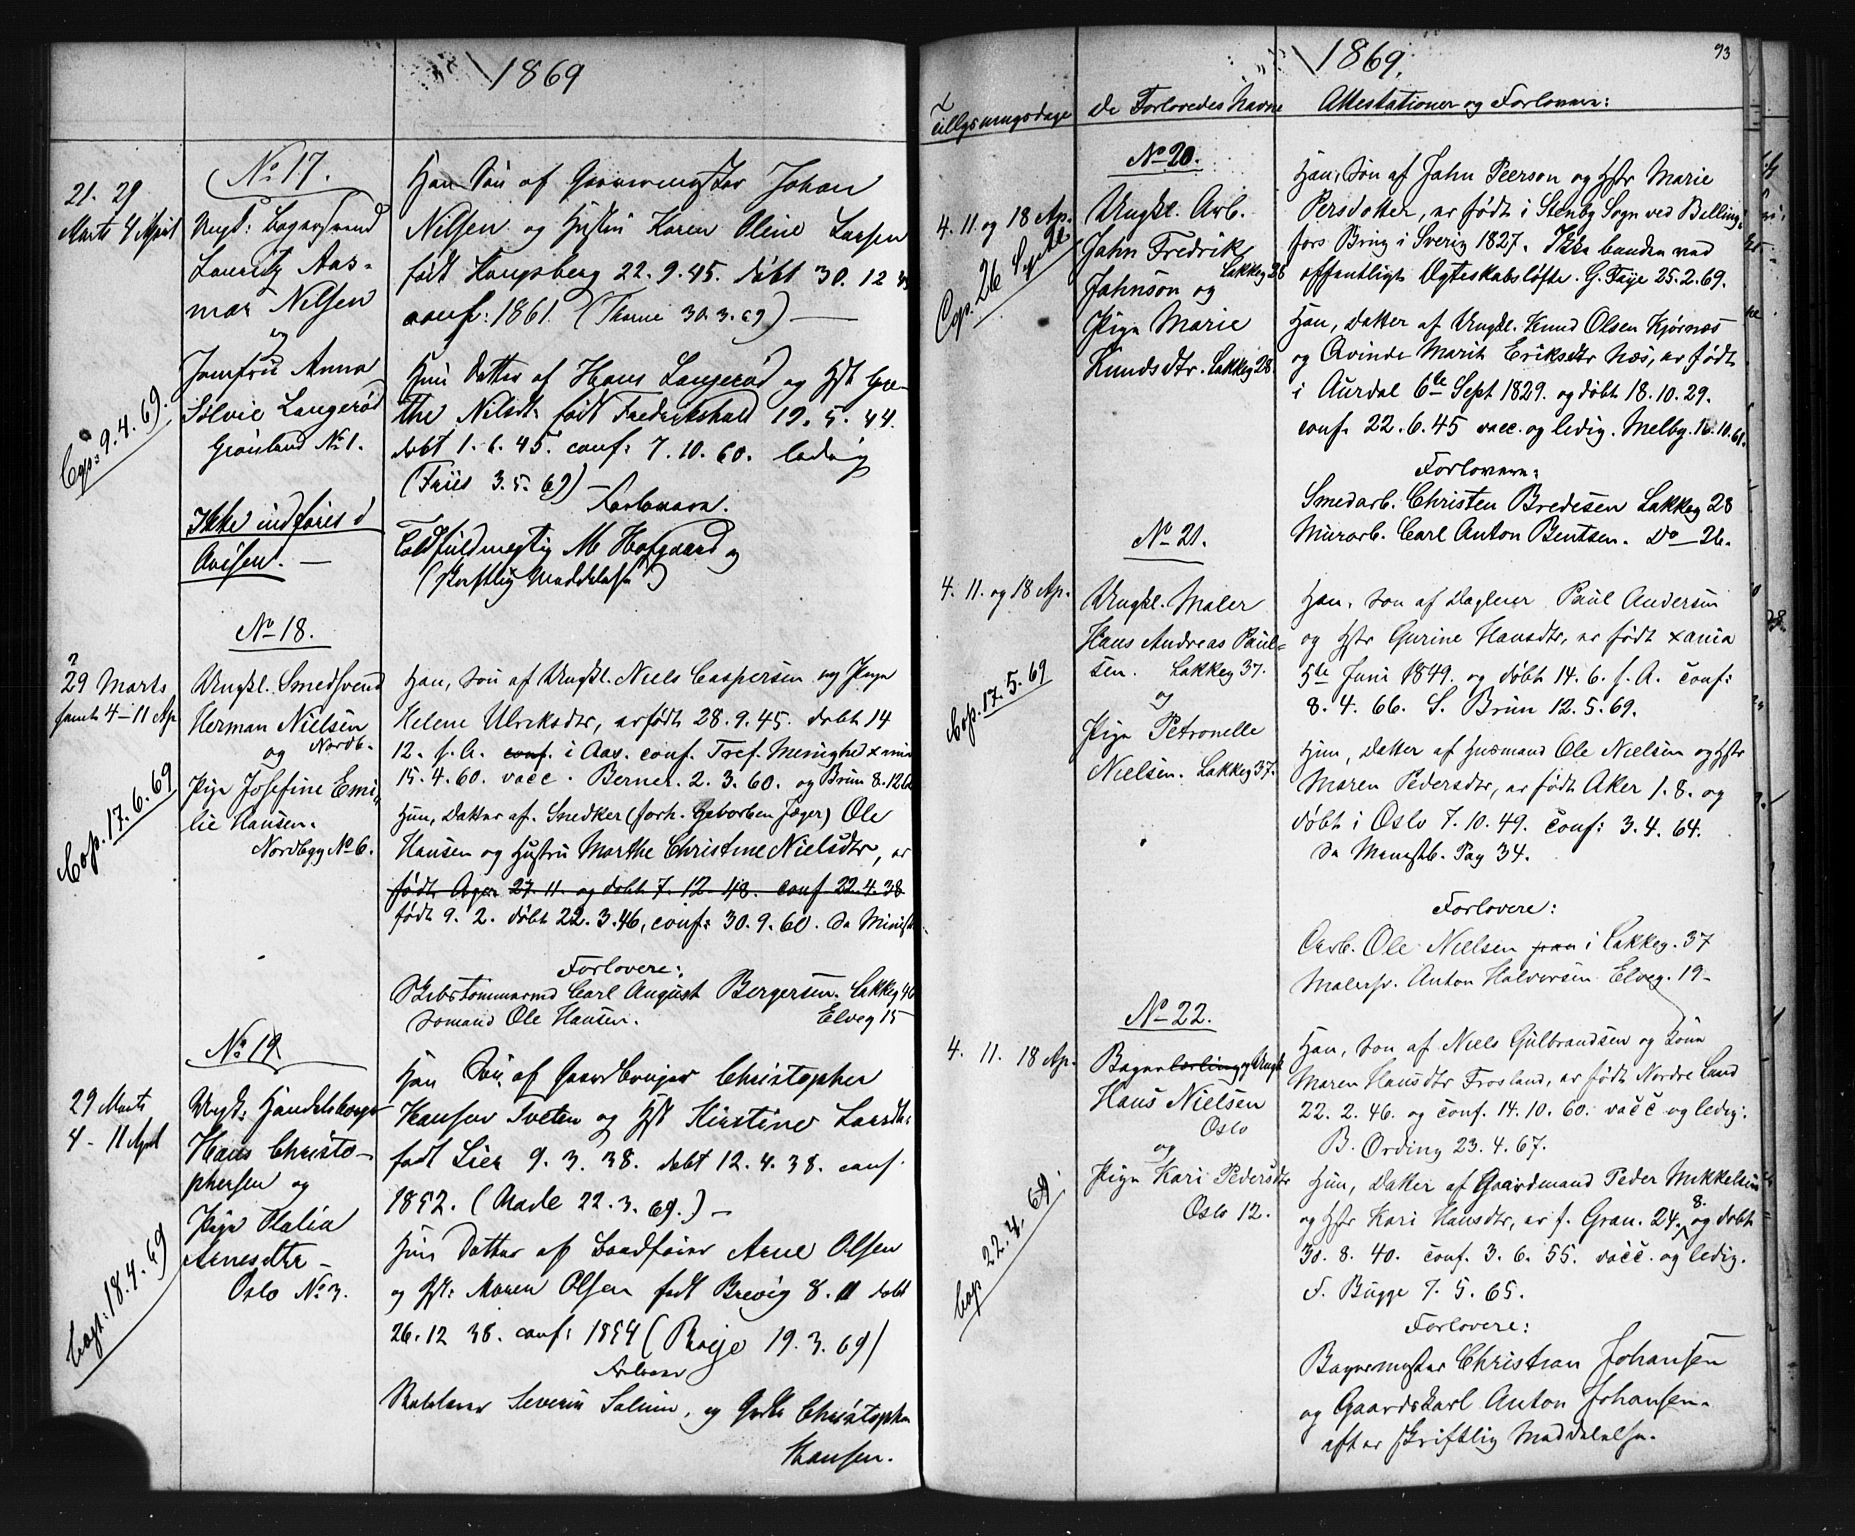 1869
No 17.
21. 29
Marts 4 April
Ungk: Bagersvend
Lauritz Aas-
mar Nilsen
og
Jomfru Anna
Sølvie Langerød
Grønland No 1.
Cop: 9.4.69.
Ikke indføres i
Avisen. —
Han Søn af Johan
Nilsen og Hustru Karen Oline Larsen
født Kongsberg 22.9.45. døbt 30.12
conf: 1861 (30.3.69) —
Hun Datter af Hans Langerød og Hst Gre-
the Nilsdt: født Frederikshald 19.5.44.
døbt 1.6.45. conf: 7.10.60. ledig
(Friis 3.5.69) —
Forlovere.
Toldfuldmegtig M Hofgaard og
(skriftlig Meddelelse)
No 18.
29 Marts
samt 4-11 Ap
Cop. 17.6.69
Ungkl. Smedsvend
Herman Nielsen
og Nordb.
Pige Josefine Emi-
lie Hansen.
Nordbyg No 6.
Han, Søn af Ungkl. Niels Caspersen og Pige
Helene Ulriksdtr, er født 28.9.45. døbt 14
12. s. A. conf. i Aas. conf. Tref. Menighed xania
15.4.60. vacc. Berner. 2.3.60. og Brun 8.12.6
Hun, Datter af Snedker (forh. Jæger) Ole
Hansen og Hustru Marthe Christine Nielsdtr, er
født Ager 27.11. og døbt 7.12.48. conf 22.4.38
født 9.2. døbt 22.3.46, conf: 30.9.60. Da Minist
Forlovere:
Skibstømmermd Carl August Bergersen. Lakkeg 40
Sømand Ole Hansen. Elveg 15
No 19
29 Marts
4 - 11 April
Copt: 18.4.69
Ungk: Handelsborger
Hans Christo-
phersen og
Pige Thalia
Arnesdtr —
Oslo No 3.
Han Søn af Gaardbruger Christopher
Hansen Tveten og Hst Kirstine Larsdt:
født Lier 9.3.38. døbt 12.4.38. conf.
1852. (22.3.69.) —
Hun Datter af Arne Olsen
og Hst: Maren Olsen født Brevig 8.11 døbt
26.12 38. conf: 1854 (19.3.69)
Severin og Christopher
Hansen.
1869.
93
Tillysningsdage
De Forlovedes Navne
Attestationer og Forlovere:
No 20.
4. 11. og 18 Ap.
Cop. 26
Ungkl. Arb.
Jahn Fredrik
Lakkeg 26
Jahnson og
Pige Marie
Knudsdtr. Lakkeg 28
Han, Søn af Jahn Peerson og Hstr Marie
Persdotter, er født i Stenby Sogn ved Billing-
fors Brug i Sverig 1827. Ikke bunden ved
offentligt Ægteskabsløfte. G. Faye 25.2.69.
Hun, Datter af Ungkl. Knud Olsen Kjørnæs
og Qvinde Marit Eriksdtr Næs, er født
i Aurdal 6te Sept 1829. og døbt 18.10.29.
conf. 22.6.45 vacc. og ledig. Melby. 16.10.61.
Forlovere:
Smedarb. Christen Bredesen Lakkeg 28
Murarb. Carl Anton Bentsen. Do — 26.
No 21.
4. 11. og 18 Ap.
Cop. 17.5.69
Ungkl. Maler
Hans Andreas Paul-
sen. Lakkeg 37.
og
Pige Petronelle
Nielsen. Lakkeg 37.
Han, Søn af Dagleier Paul Andersen
og Hstr Gurine Hansdtr, er født xania
5te Juni 1849. og døbt 14.6. s. A. conf:
8.4.66. S. Brun 12.5.69.
Hun, Datter af Husmand Ole Nielsen og Hstr
Maren Pedersdtr, er født Aker 1.8. og
døbt i Oslo 7.10.49. conf: 3.4.64.
Da Menistb. Pag 34.
Forlovere:
Arb. Ole Nielsen i Lakkeg. 37
Malersv. Anton Halvorsen Elveg. 19 —
No 22.
4. 11. 18 Ap.
Cop 22.4.69.
Bagerlærling og Ungk
Hans Nielsen
Oslo
og
Pige Kari Pedersdtr
Oslo 12.
Han, Søn af Niels Gulbrandsen og Kone
Maren Hansdtr Frosland, er født Nordre Land
22.2.46. og conf. 14.10.60. vacc og ledig.
B. Ording 23.4.67.
Hun, Datter af Gaardmand Peder Mikkelsen
og Hstr Kari Hansdtr, er f. Gran. 24. 8. og døbt
30.8.40. conf. 3.6.55. vacc. og ledig.
F. Bugge 7.5.65.
Forlovere:
Bagermester Christian Johansen
og Gaardskarl Anton Johansen.
efter skriftlig Meddelelse.